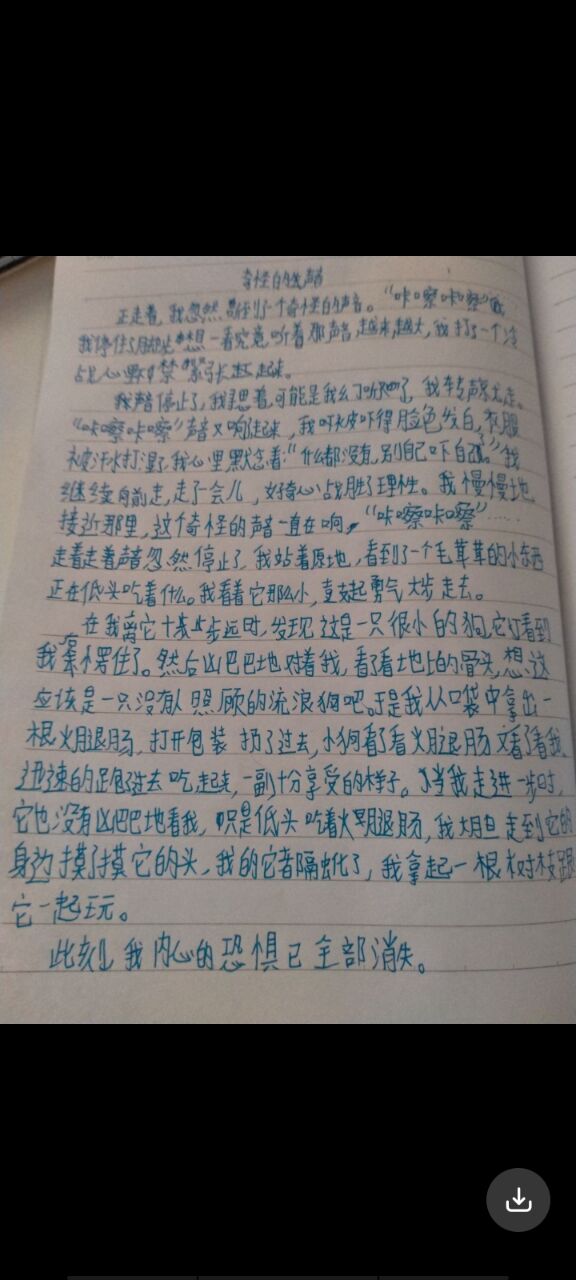 奇怪的声音
正走着,我忽然听到一个奇怪的声音。"咔嚓咔嚓"
我停住了脚步想一看究竟听着那声音越来越大,我打了一个冷
战心里紧张起来。
声音停止了,我思着可能是我幻听吧了,我转声就走。
"咔嚓咔嚓"声又响起来,我吓得脸色发白,衣服
被汗水打湿了我心里默念着:"什么都没有,别自己吓自己"我
继续向前走,走了一会儿,好奇心战胜了理性。我慢慢地
接近那里,这个奇怪的声音一直在响,"咔嚓咔嚓"……
走着走着声音忽然停止了,我站着原地,看到了一个毛茸茸的小东西
正在低头吃着什么。我看着它那么小,鼓起勇气大步走去。
在我离它十来步远时,发现这是一只很小的狗,它看到
我愣住了。然后凶巴巴地对着我,看了看地上的骨头,想这
应该是一只没有人照顾的流浪狗吧。于是我从口袋中拿出一
根火腿肠,打开包装扔了过去,小狗看了看火腿肠又看了看我
迅速的跑过去吃起来,一副十分享受的样子。当我走进一步时,
它也没有凶巴巴地看我,只是低头吃着火腿肠,我大胆走到它的
身边摸了摸它的头,我的它者隔融化了,我拿起一根树枝跟
它一起玩。
此刻我内心的恐惧已全部消失。